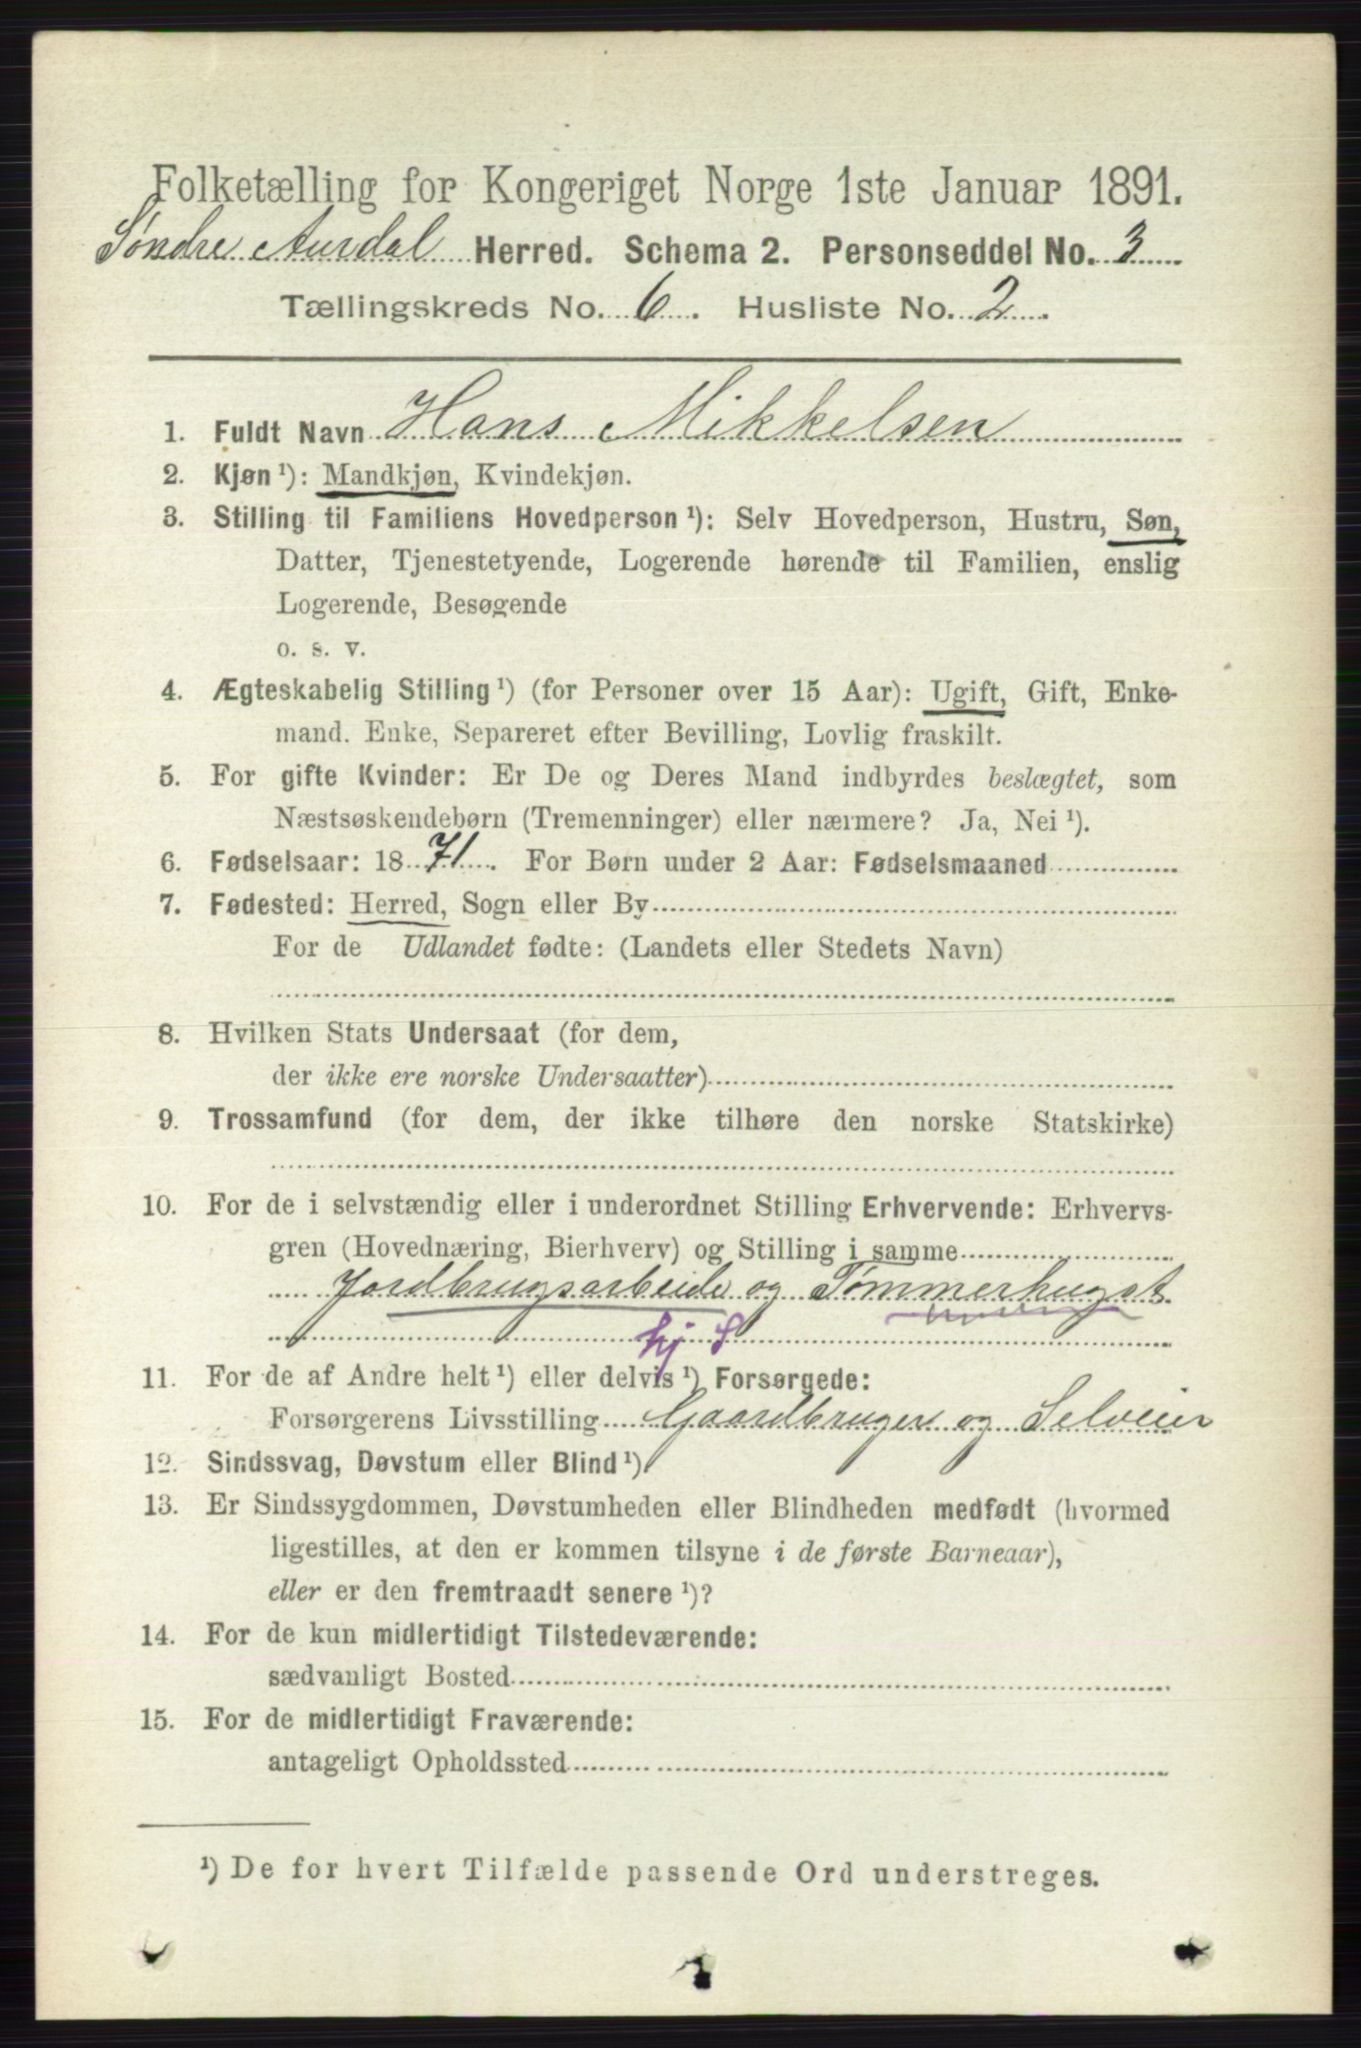 Folketælling for Kongeriget Norge 1ste Januar 1891.
Søndre Aurdal Herred. Schema 2. Personseddel No. 3
Tællingskreds No. 6. Husliste No. 2.
1. Fuldt Navn Hans Mikkelsen
2. Kjøn ¹): Mandkjøn, Kvindekjøn.
3. Stilling til Familiens Hovedperson ¹): Selv Hovedperson, Hustru, Søn,
Datter, Tjenestetyende, Logerende hørende til Familien, enslig
Logerende, Besøgende
o. s. v.
4. Ægteskabelig Stilling ¹) (for Personer over 15 Aar): Ugift, Gift, Enke-
mand. Enke, Separeret efter Bevilling, Lovlig fraskilt.
5. For gifte Kvinder: Er De og Deres Mand indbyrdes beslægtet, som
Næstsøskendebørn (Tremenninger) eller nærmere? Ja, Nei ¹).
6. Fødselsaar: 1871. For Børn under 2 Aar: Fødselsmaaned
7. Fødested: Herred, Sogn eller By
For de Udlandet fødte: (Landets eller Stedets Navn)
8. Hvilken Stats Undersaat (for dem,
der ikke ere norske Undersaatter)
9. Trossamfund (for dem, der ikke tilhøre den norske Statskirke)
10. For de i selvstændig eller i underordnet Stilling Erhvervende: Erhvervs-
gren (Hovednæring, Bierhverv) og Stilling i samme
Jordbrugsarbeide og Tømmerhugst
hj S
11. For de af Andre helt ¹) eller delvis ¹) Forsørgede:
Forsørgerens Livsstilling Gaardbruger og Selveier
12. Sindssvag, Døvstum eller Blind ¹).
13. Er Sindssygdommen, Døvstumheden eller Blindheden medfødt (hvormed
ligestilles, at den er kommen tilsyne i de første Barneaar),
eller er den fremtraadt senere ¹)?
14. For de kun midlertidigt Tilstedeværende:
sædvanligt Bosted
15. For de midlertidigt Fraværende:
antageligt Opholdssted
¹) De for hvert Tilfælde passende Ord understreges.